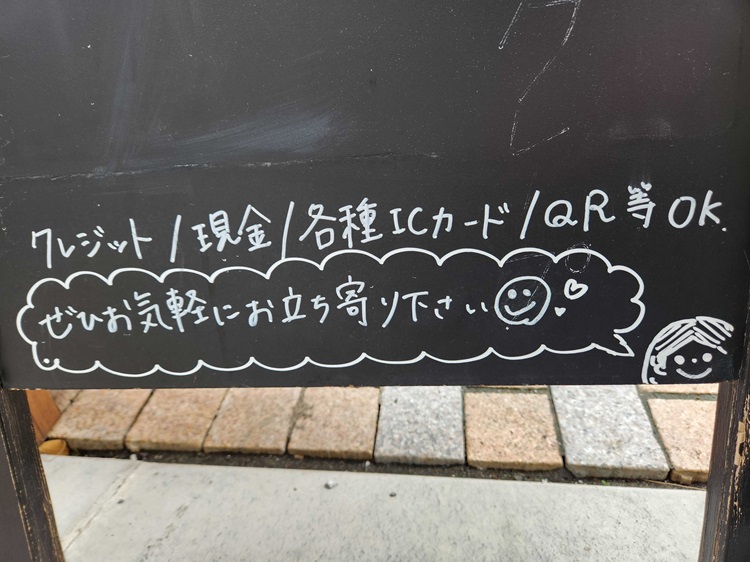 クレジット/現金/各種ICカード/QR等OK.
ぜひお気軽にお立ち寄り下さい